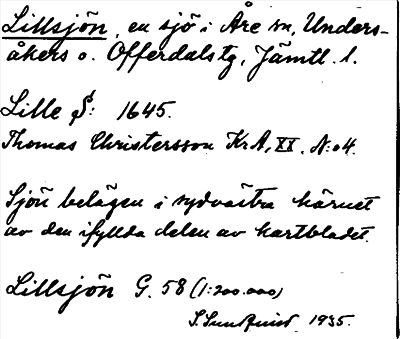 Lillsjön, en sjö i Åre sn, Unders-
åkers o. Offerdals tg, Jämtl. l.
Lille S: 1645.
Thomas Christersson KrA, XX, N:o 4.
Sjön belägen i sydvästra hörnet
av den ifyllda delen av kartbladet.
Lillsjön G. 58 (1:200.000)
S. Sundquist 1935.